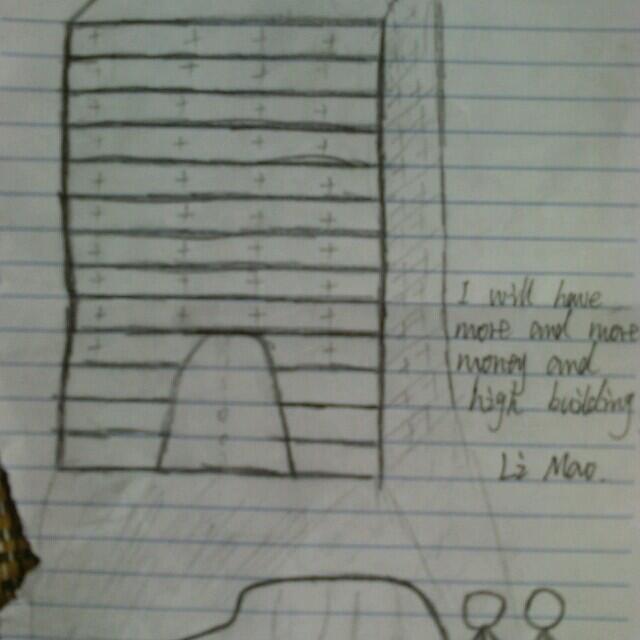 I will have
more and more
money and
high building
Li Mao.